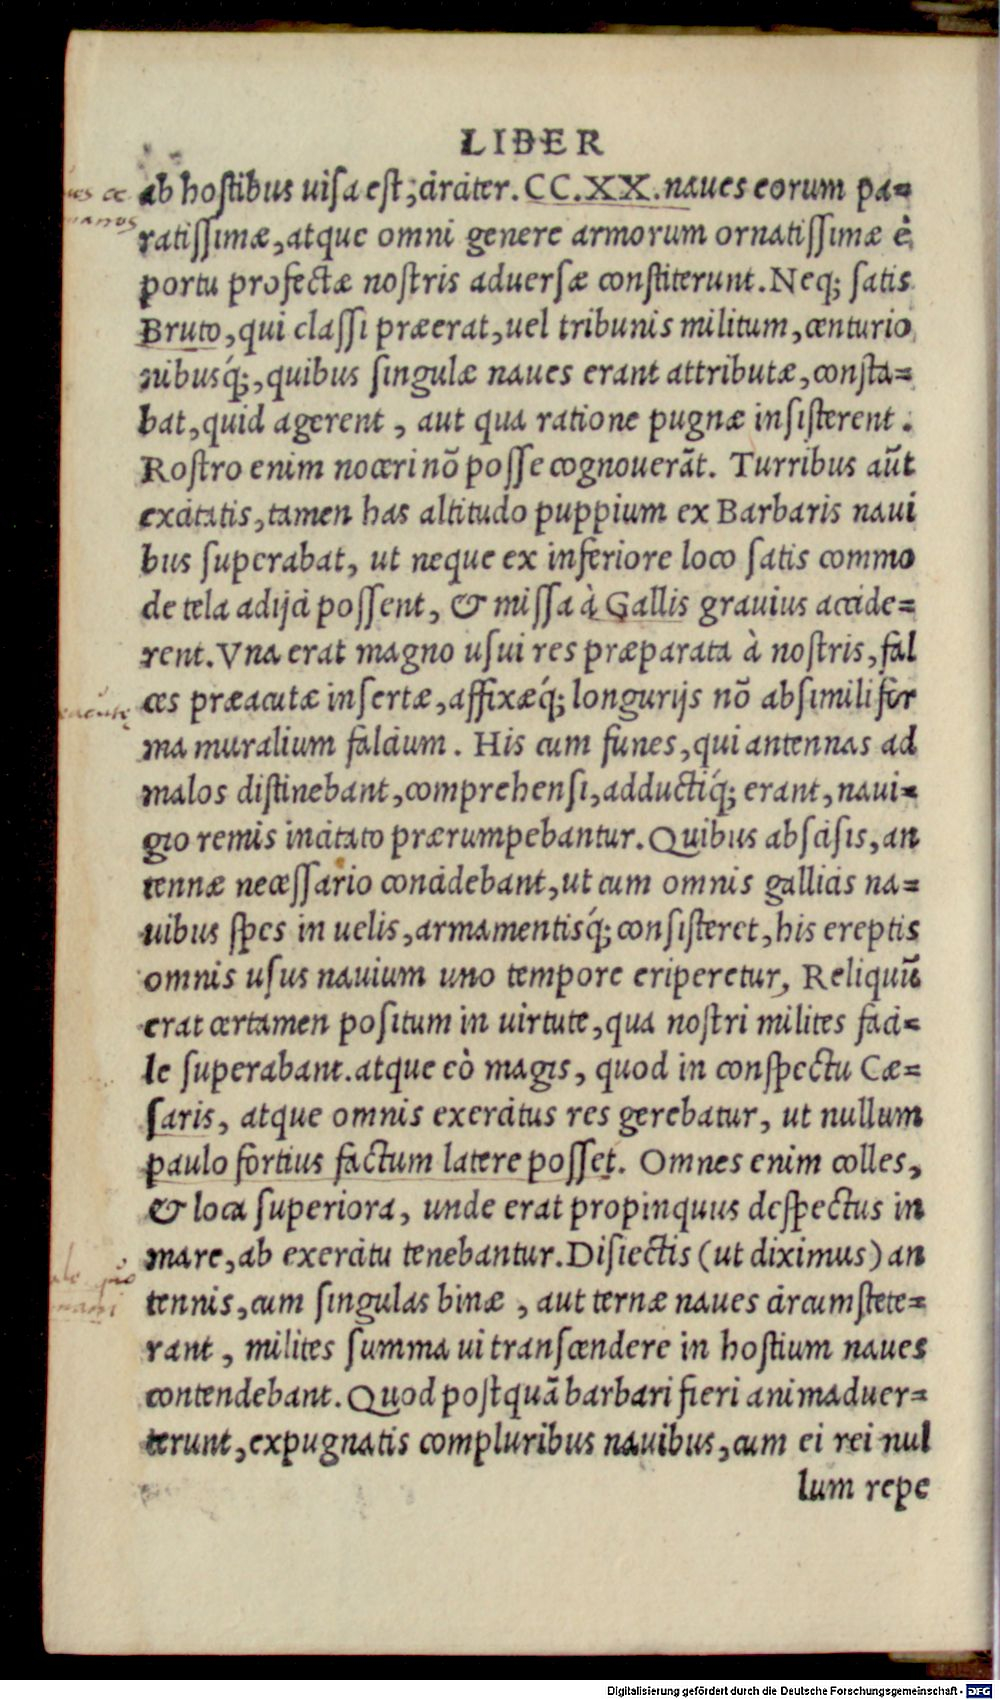 LIBER
ab hostibus uisa est; circiter. CC.XX. naues eorum pa=
ratissimæ, atque omni genere armorum ornatissimæ è
portu profectæ nostris aduersæ constiterunt. Neq; satis
Bruto, qui classi præerat, uel tribunis militum, centurio
nibusq́;, quibus singulæ naues erant attributæ, consta=
bat, quid agerent, aut qua ratione pugnæ insisterent.
Rostro enim noceri nõ posse cognouerãt. Turribus aũt
excitatis, tamen has altitudo puppium ex Barbaris naui
bus superabat, ut neque ex inferiore loco satis commo
de tela adijci possent, & missa à Gallis grauius accide=
rent. Vna erat magno usui res præparata à nostris, fal
ces præacutæ insertæ, affixæq́; longurijs nõ absimili for
ma muralium falcium. His cum funes, qui antennas ad
malos distinebant, comprehensi, adductiq́; erant, naui=
gio remis incitato prærumpebantur. Quibus abscisis, an
tennæ necessario concidebant, ut cum omnis gallicis na=
uibus spes in uelis, armamentisq́; consisteret, his ereptis
omnis usus nauium uno tempore eriperetur, Reliquũ
erat certamen positum in uirtute, qua nostri milites faci=
le superabant. atque eò magis, quod in conspectu Cæ=
saris, atque omnis exercitus res gerebatur, ut nullum
paulo fortius factum latere posset. Omnes enim colles,
& loca superiora, unde erat propinquus despectus in
mare, ab exercitu tenebantur. Disiectis (ut diximus) an
tennis, cum singulas binæ, aut ternæ naues circumstete=
rant, milites summa ui transcendere in hostium naues
contendebant. Quod postquã barbari fieri animaduer=
terunt, expugnatis compluribus nauibus, cum ei rei nul
lum repe
Digitalisierung gefördert durch die Deutsche Forschungsgemeinschaft - DFG